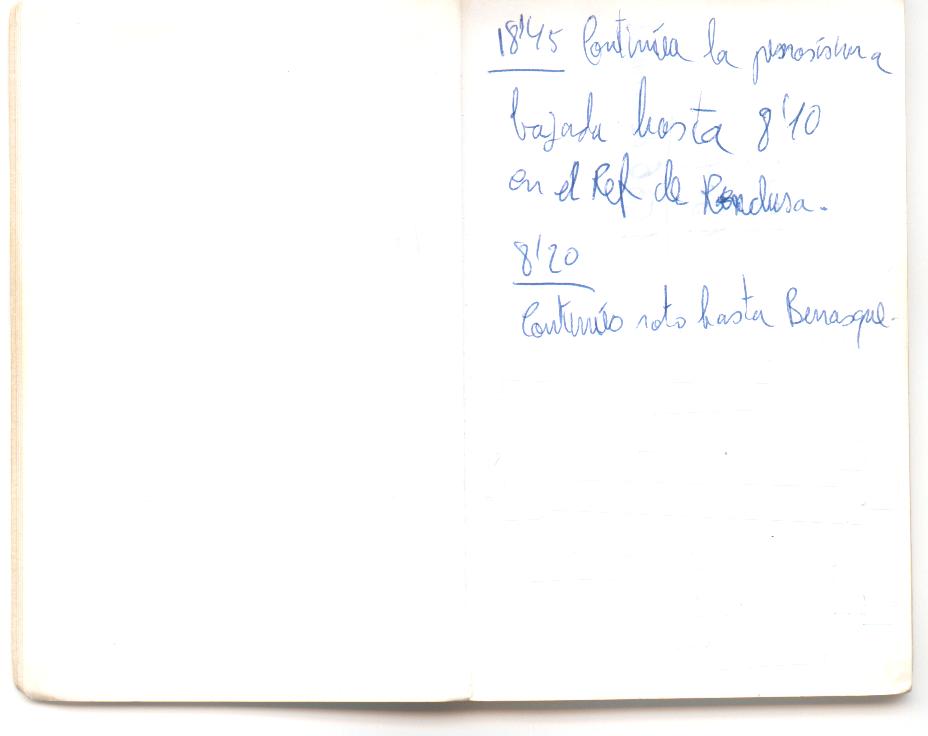 18'45 Continúa la penosísima
bajada hasta 8'10
en el Ref de Rendusa.
8'20
Continúo roto hasta Benasque.